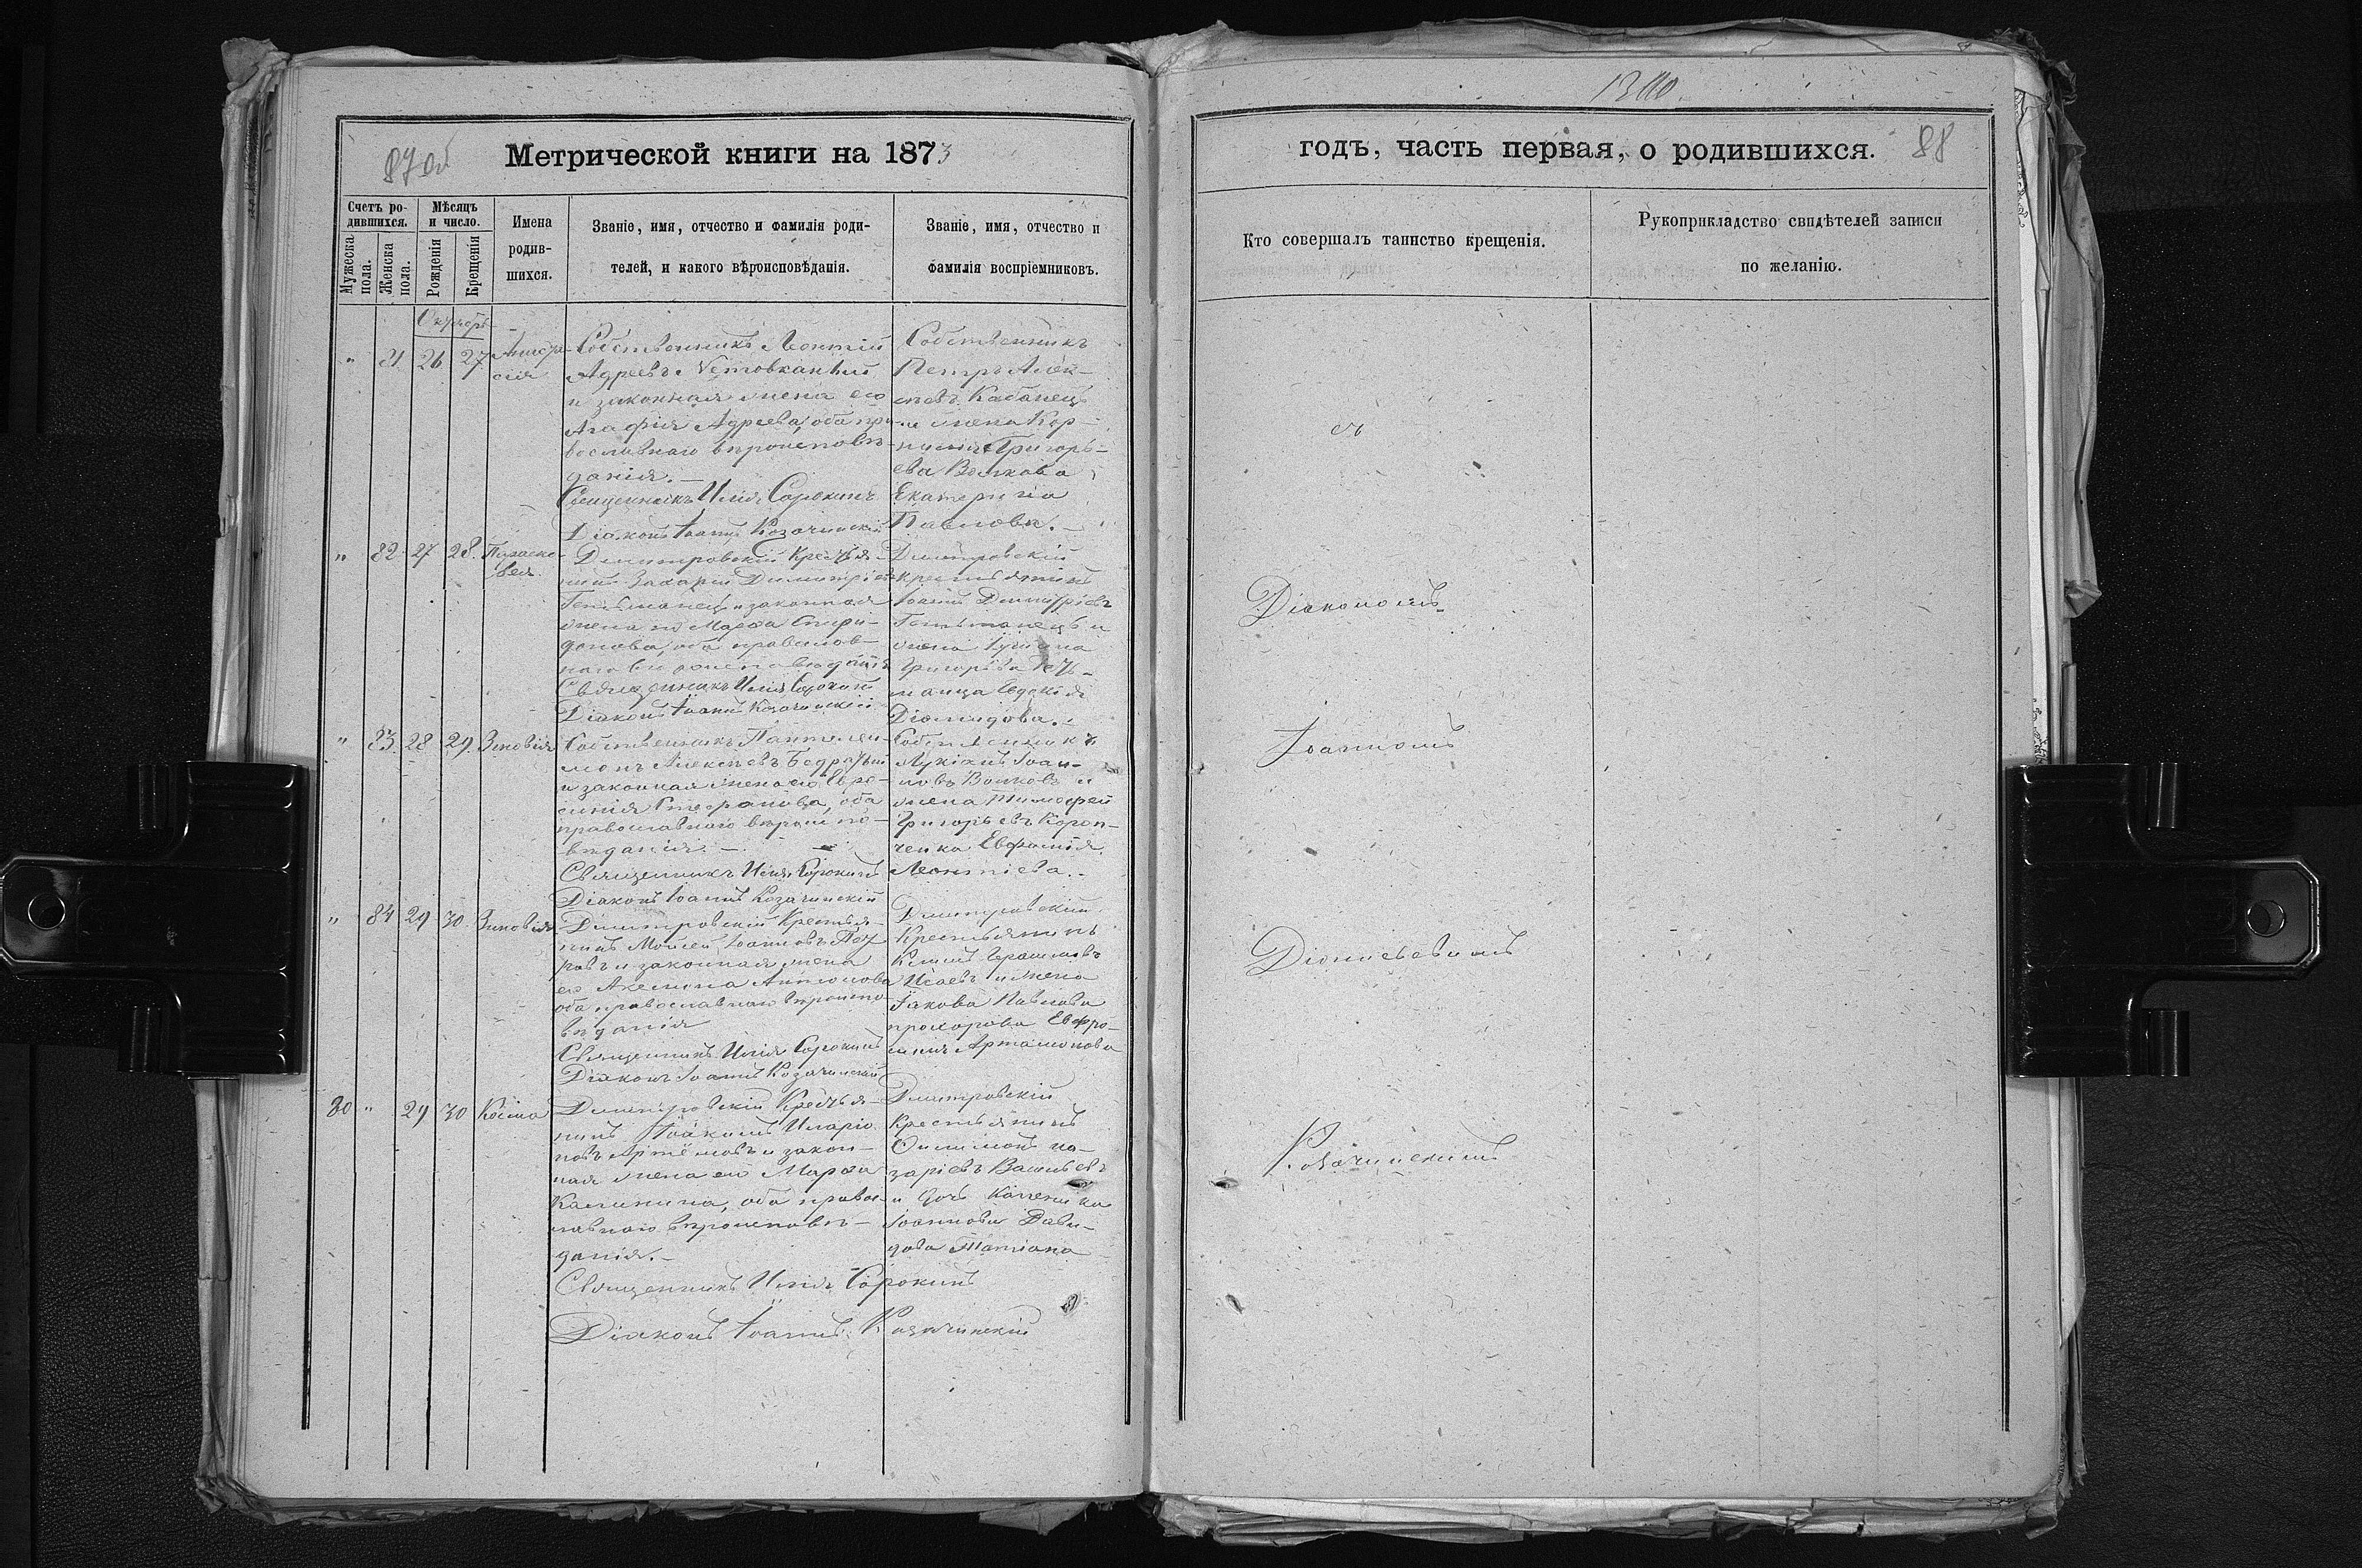 1300
87об
Метрической книги на 1873
годъ, часть первая, о родившихся. 88
Счетъ ро-
дившихся.
Мужеска
пола.
Женска
пола.
Мѣсяцъ
и число.
Рожденія
Крещенія
Имена
родив-
шихся.
Званіе, имя, отчество и фамилія роди-
телей, и какого вѣроисповѣданія.
Званіе, имя, отчество и
фамилія воспріемниковъ.
Кто совершалъ таинство крещенія.
Рукоприкладство свидѣтелей записи
по желанію.
Октябрь
" 81 26 27 Анаста-
сія
Собственникъ Леонтій
Адреевъ
и законная жена его
Агафія Адреева, оба пра-
вославнаго вѣроисповѣ-
данія.-
Священникъ Илія Сорокинъ
Діаконъ Іоаннъ Козачинскій
Собственникъ
Петръ Алек-
сѣевъ Кабанецъ
и жена Кор-
нилія Григорь-
ева Волкова
Екатерина
Павлова.-
" 82 27 28. Параске-
вея.
Димитровскій Крестья-
нинъ Захарій Димитріевъ
Гетьманецъ и законная
жена его Марѳа Спири-
донова, оба православ-
наго вѣроисповѣданія
Священникъ Илія Сорокинъ
Діаконъ Іоаннъ Козачинскій
Димитровскій
крестьянинъ
Іоаннъ Димитріевъ
Гетьманецъ и
жена
Григорьева Геть-
манца Евдокія
Діомидова.-
" 83. 28 29. Зиновія
Собственникъ Пантелеи-
монъ Алексѣевъ
и законная жена его Евро-
синія Стефанова, оба
православнаго вѣроиспо-
вѣданія.-
Священникъ Илія Сорокинъ
Діаконъ Іоаннъ Козачинскій
Собственникъ
Лукіанъ Іоан-
новъ Волковъ и
жена Тимофея
Григорьевъ Короп-
ченка Евфимія
Леонтіева.-
" 84 29 30. Зиновія
Димитровскій Крестья-
нинъ Моисей Іоанновъ Пет-
ровъ и законная жена
его Акелина Антонова
оба православнаго вѣроиспо-
вѣданія
Священникъ Илія Сорокинъ
Діаконъ Іоаннъ Козачинскій
Димитровскій
Крестьянинъ
Исаевъ и жена
Іакова Павлова
прохорова Евфро-
синія Артамонова
80 " 29 30 Косма
Димитровскій Крестья-
нинъ Іоакимъ Иларіо-
новъ Артёмовъ и закон-
ная жена его Марѳа
Калинина, оба правос-
лавнаго вѣроисповѣ-
данія.-
Священникъ Илія Сорокинъ
Діаконъ Іоаннъ Козачинскій
Димитровскій
Крестьянинъ
Онисимъ На-
заріевъ Васильевъ
и дочь
Іоаннова Дави-
дова Татіана
Діакономъ
Іоанномъ
Діонисьевимъ
Козачинскимъ